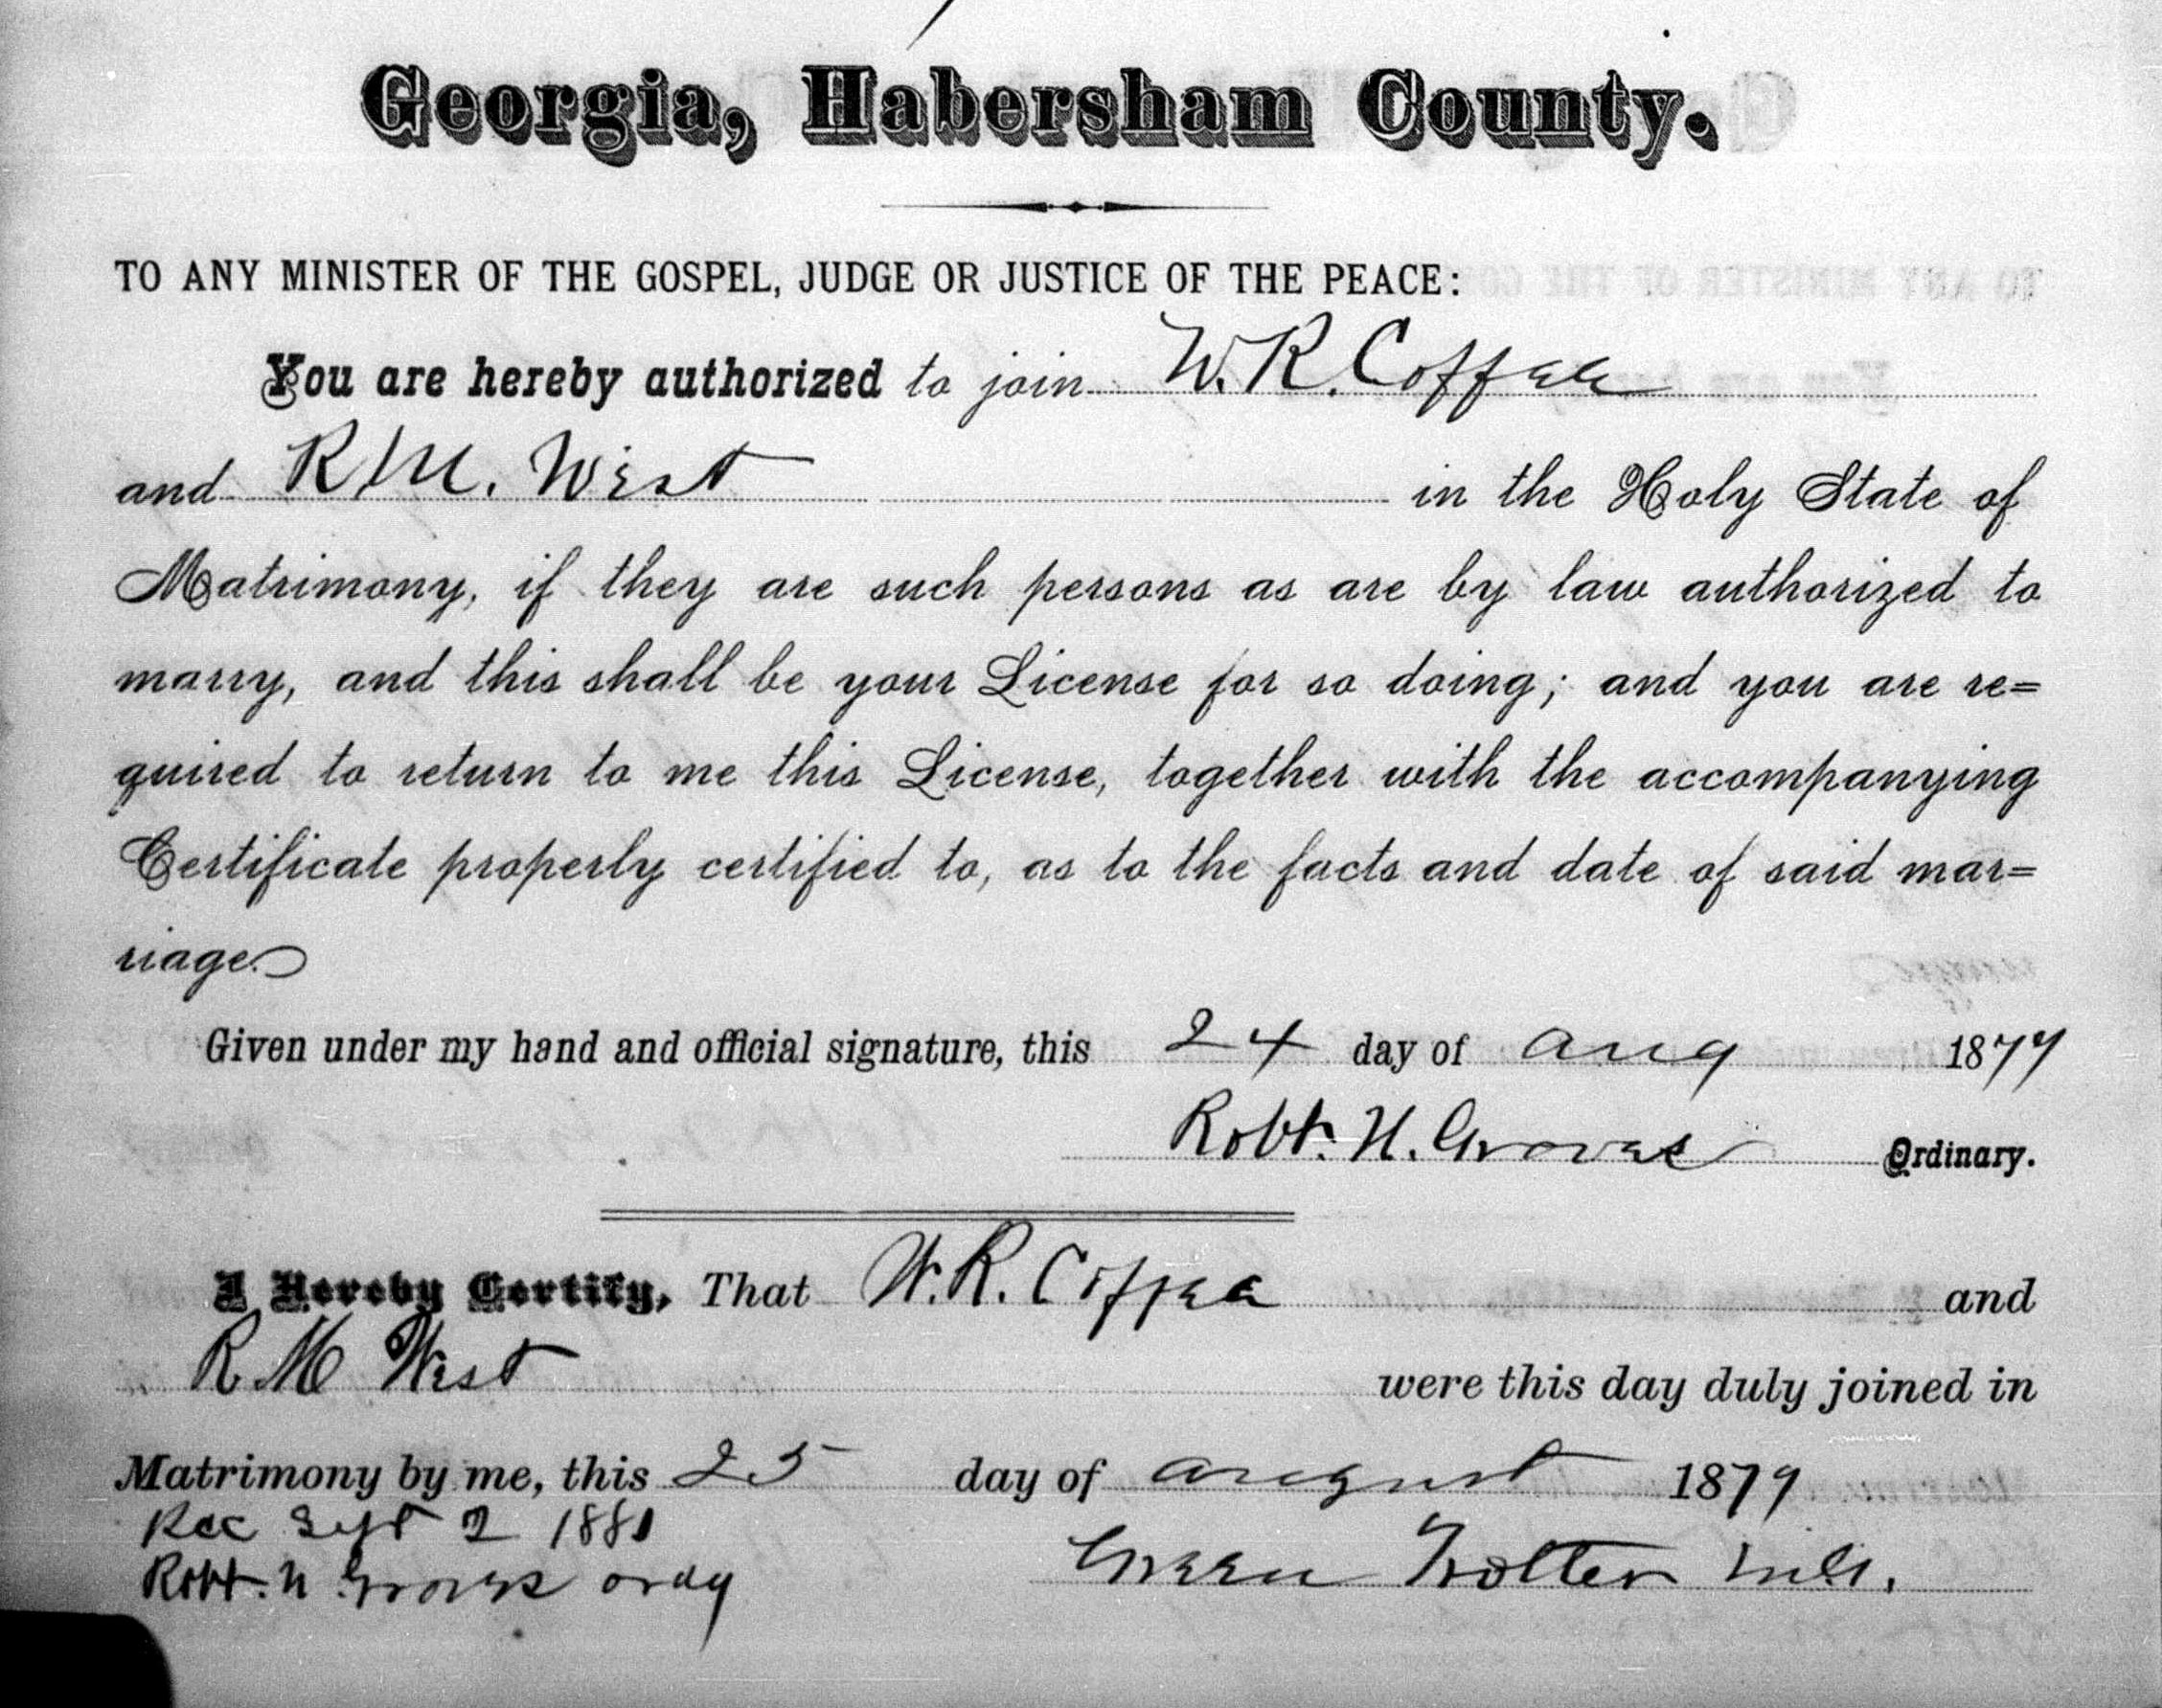 Georgia, Habersham County.
TO ANY MINISTER OF THE GOSPEL, JUDGE OR JUSTICE OF THE PEACE:
You are hereby authorized to join W. R. Coffee
and R M. West in the Holy State of
Matrimony, if they are such persons as are by law authorized to
marry, and this shall be your License for so doing; and you are re=
quired to return to me this License, together with the accompanying
Certificate properly certified to, as to the facts and date of said mar=
riage.
Given under my hand and official signature, this 24 day of Aug 1879
Robt. H. Groves Ordinary.
I Hereby Certify, That W. R. Coffee and
R. M West were this day duly joined in
Matrimony by me, this 25 day of August 1879
Rec Sept 2 1881
Robt. H Groves ordy
Green Trotter